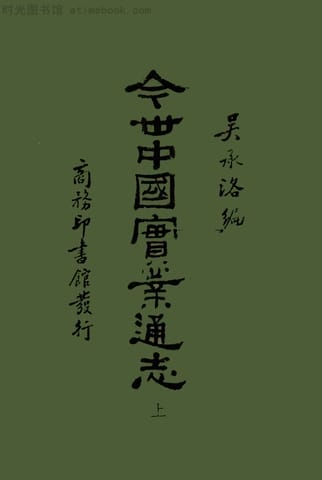 时光图书馆 atimebook.com
吴承洛編
今世中國實業通志
上
商務印書館發行